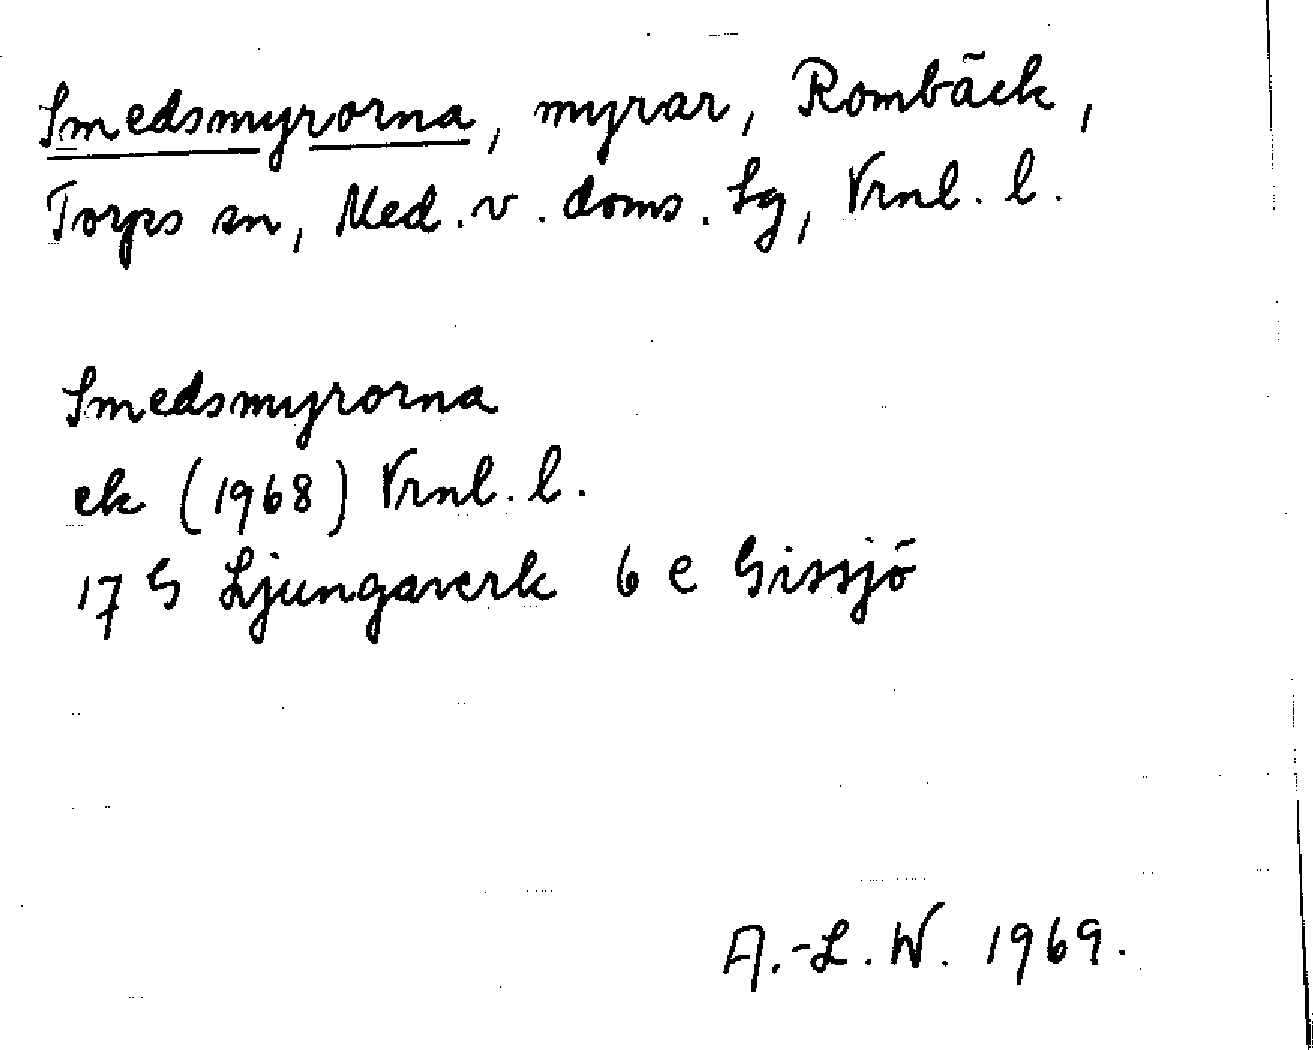 Smedsmyrorna, myrar, Rombäck,
Torps sn, Med. v. doms. Sg, Vrnl. l.
Smedsmyrorna
ek (1968) Vrnl. l.
17 G Ljungaverk 6 e Gissjö
A.-L. W. 1969.